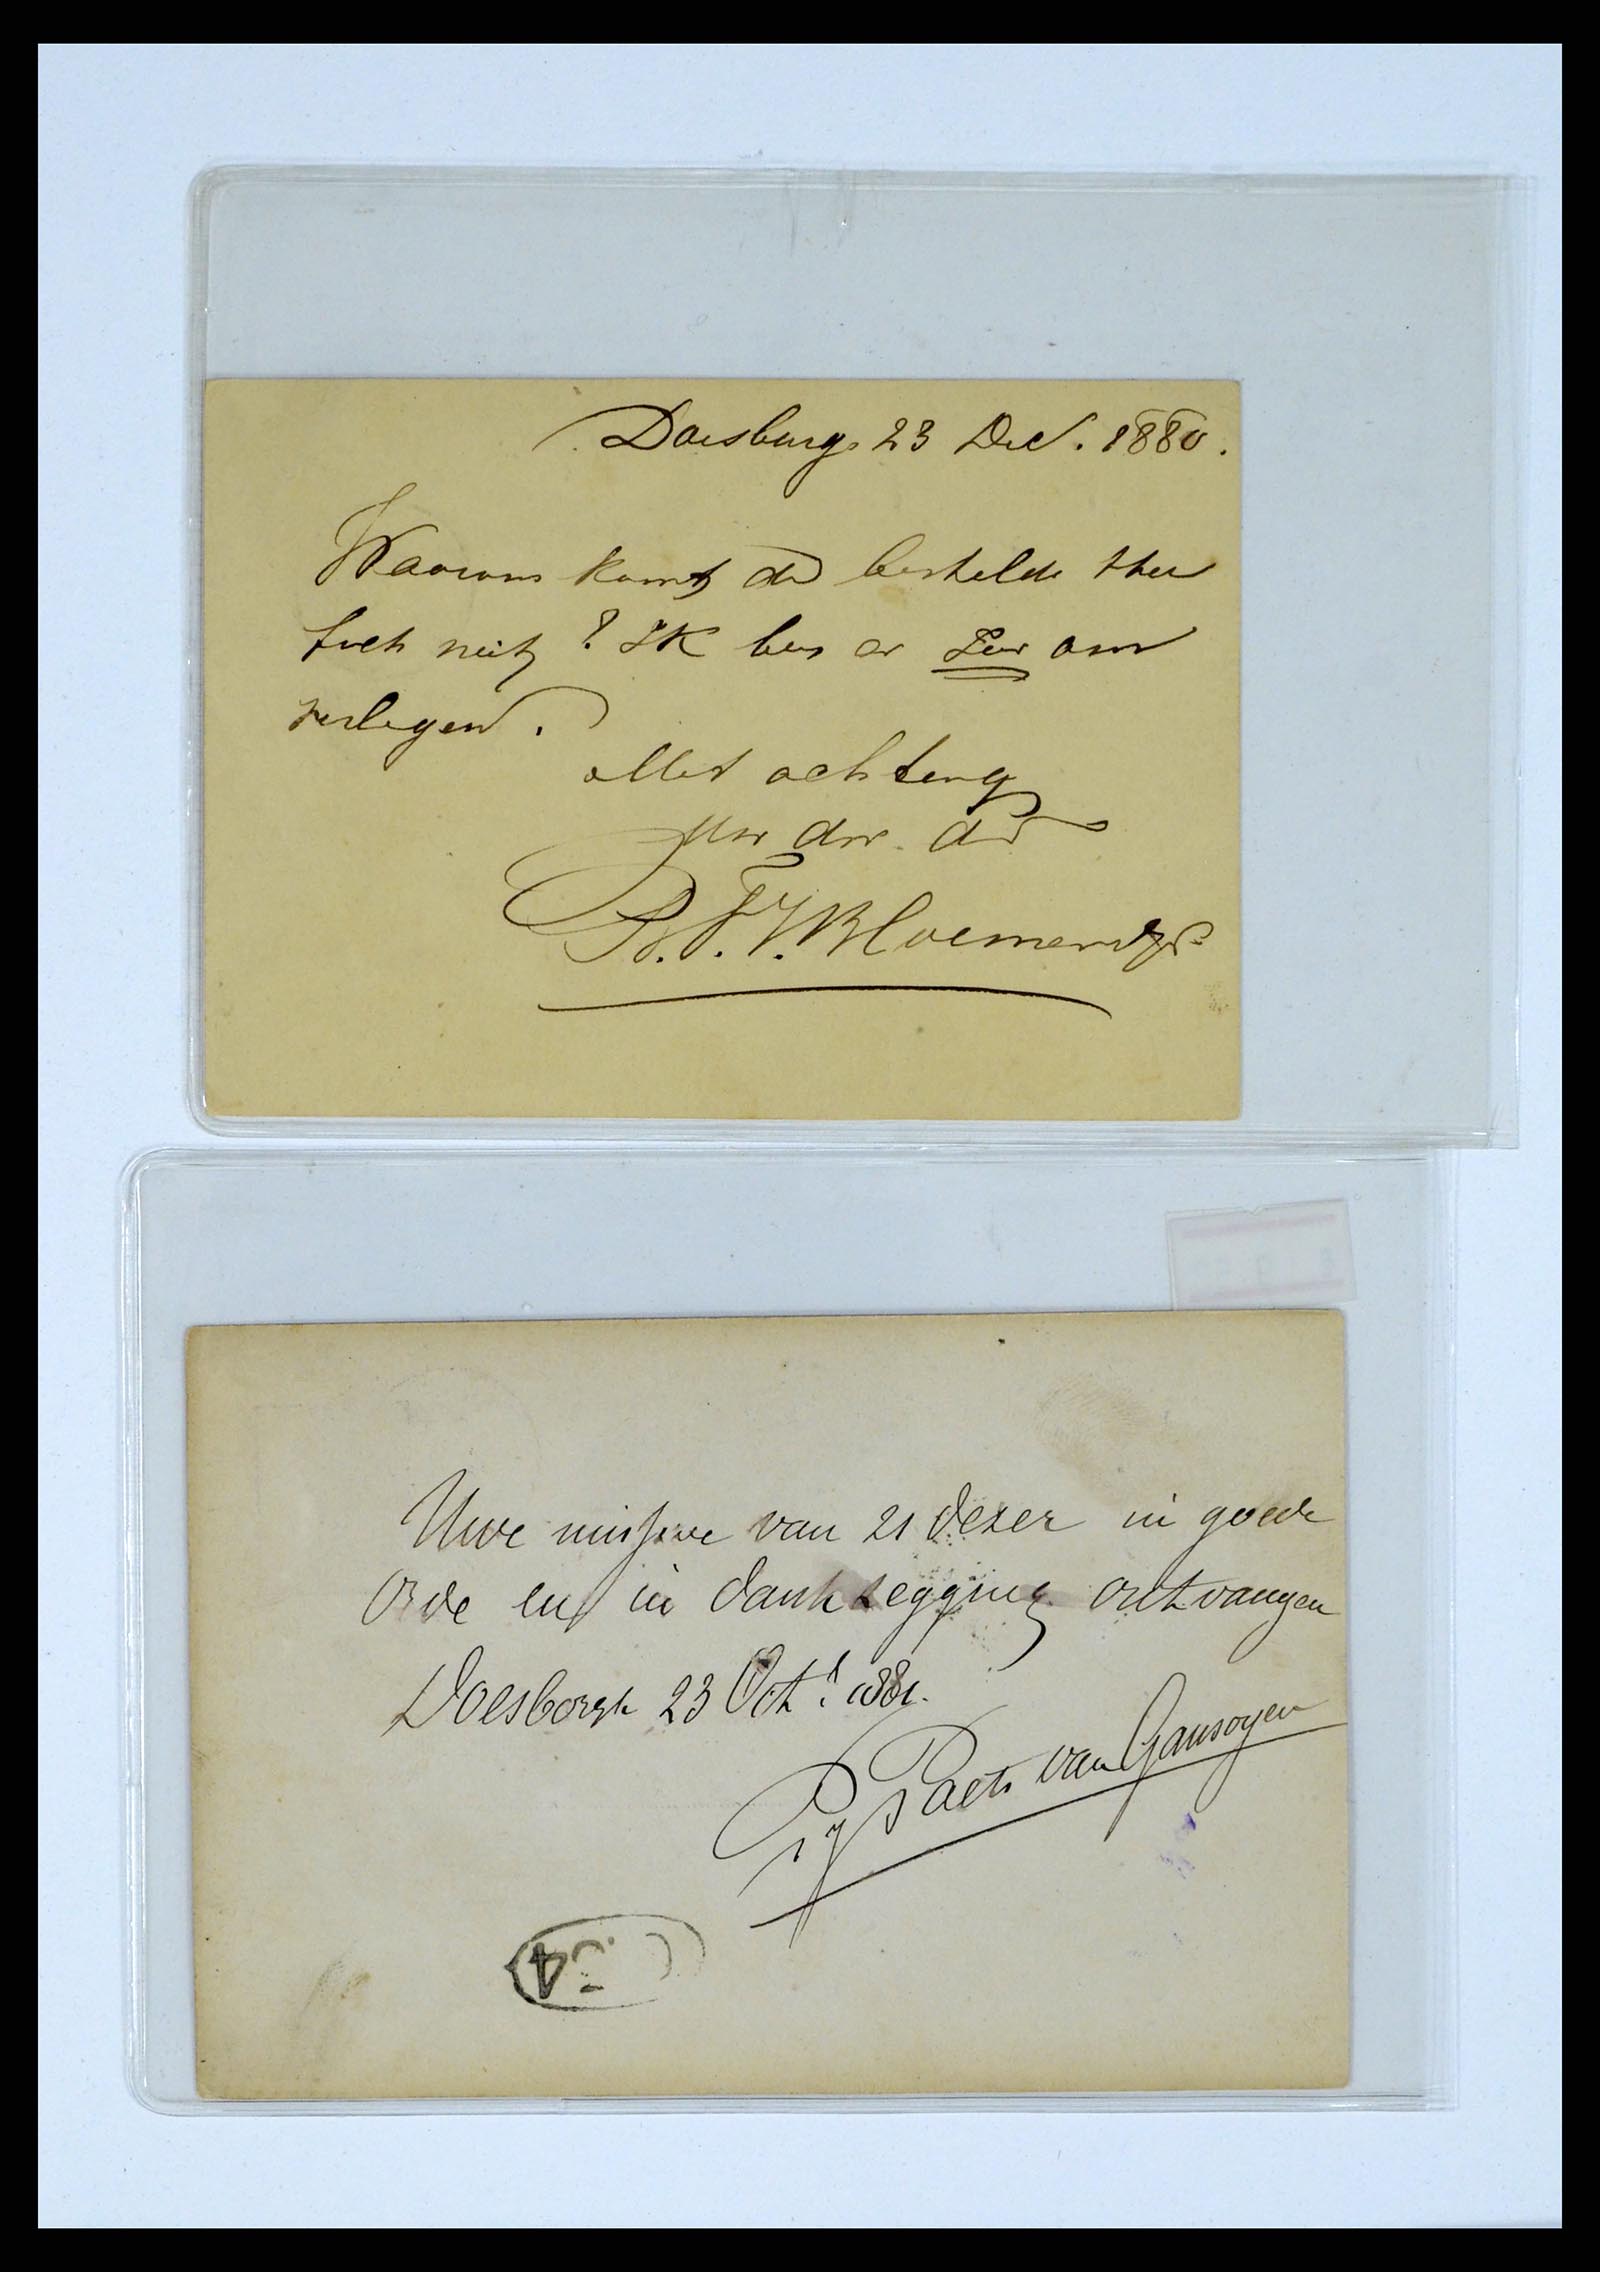 Doesburg 23 Dec. 1880.
Waarom komt de bestelde thee
toch niet? Ik ben er zeer om
verlegen.
Met achting
Uw dw. d
Uwe missive van 21 dezer in goede
Orde en in dankzegging ontvangen
Doesborgh 23 Oct. 1881.
Paets van Gansoyen
34